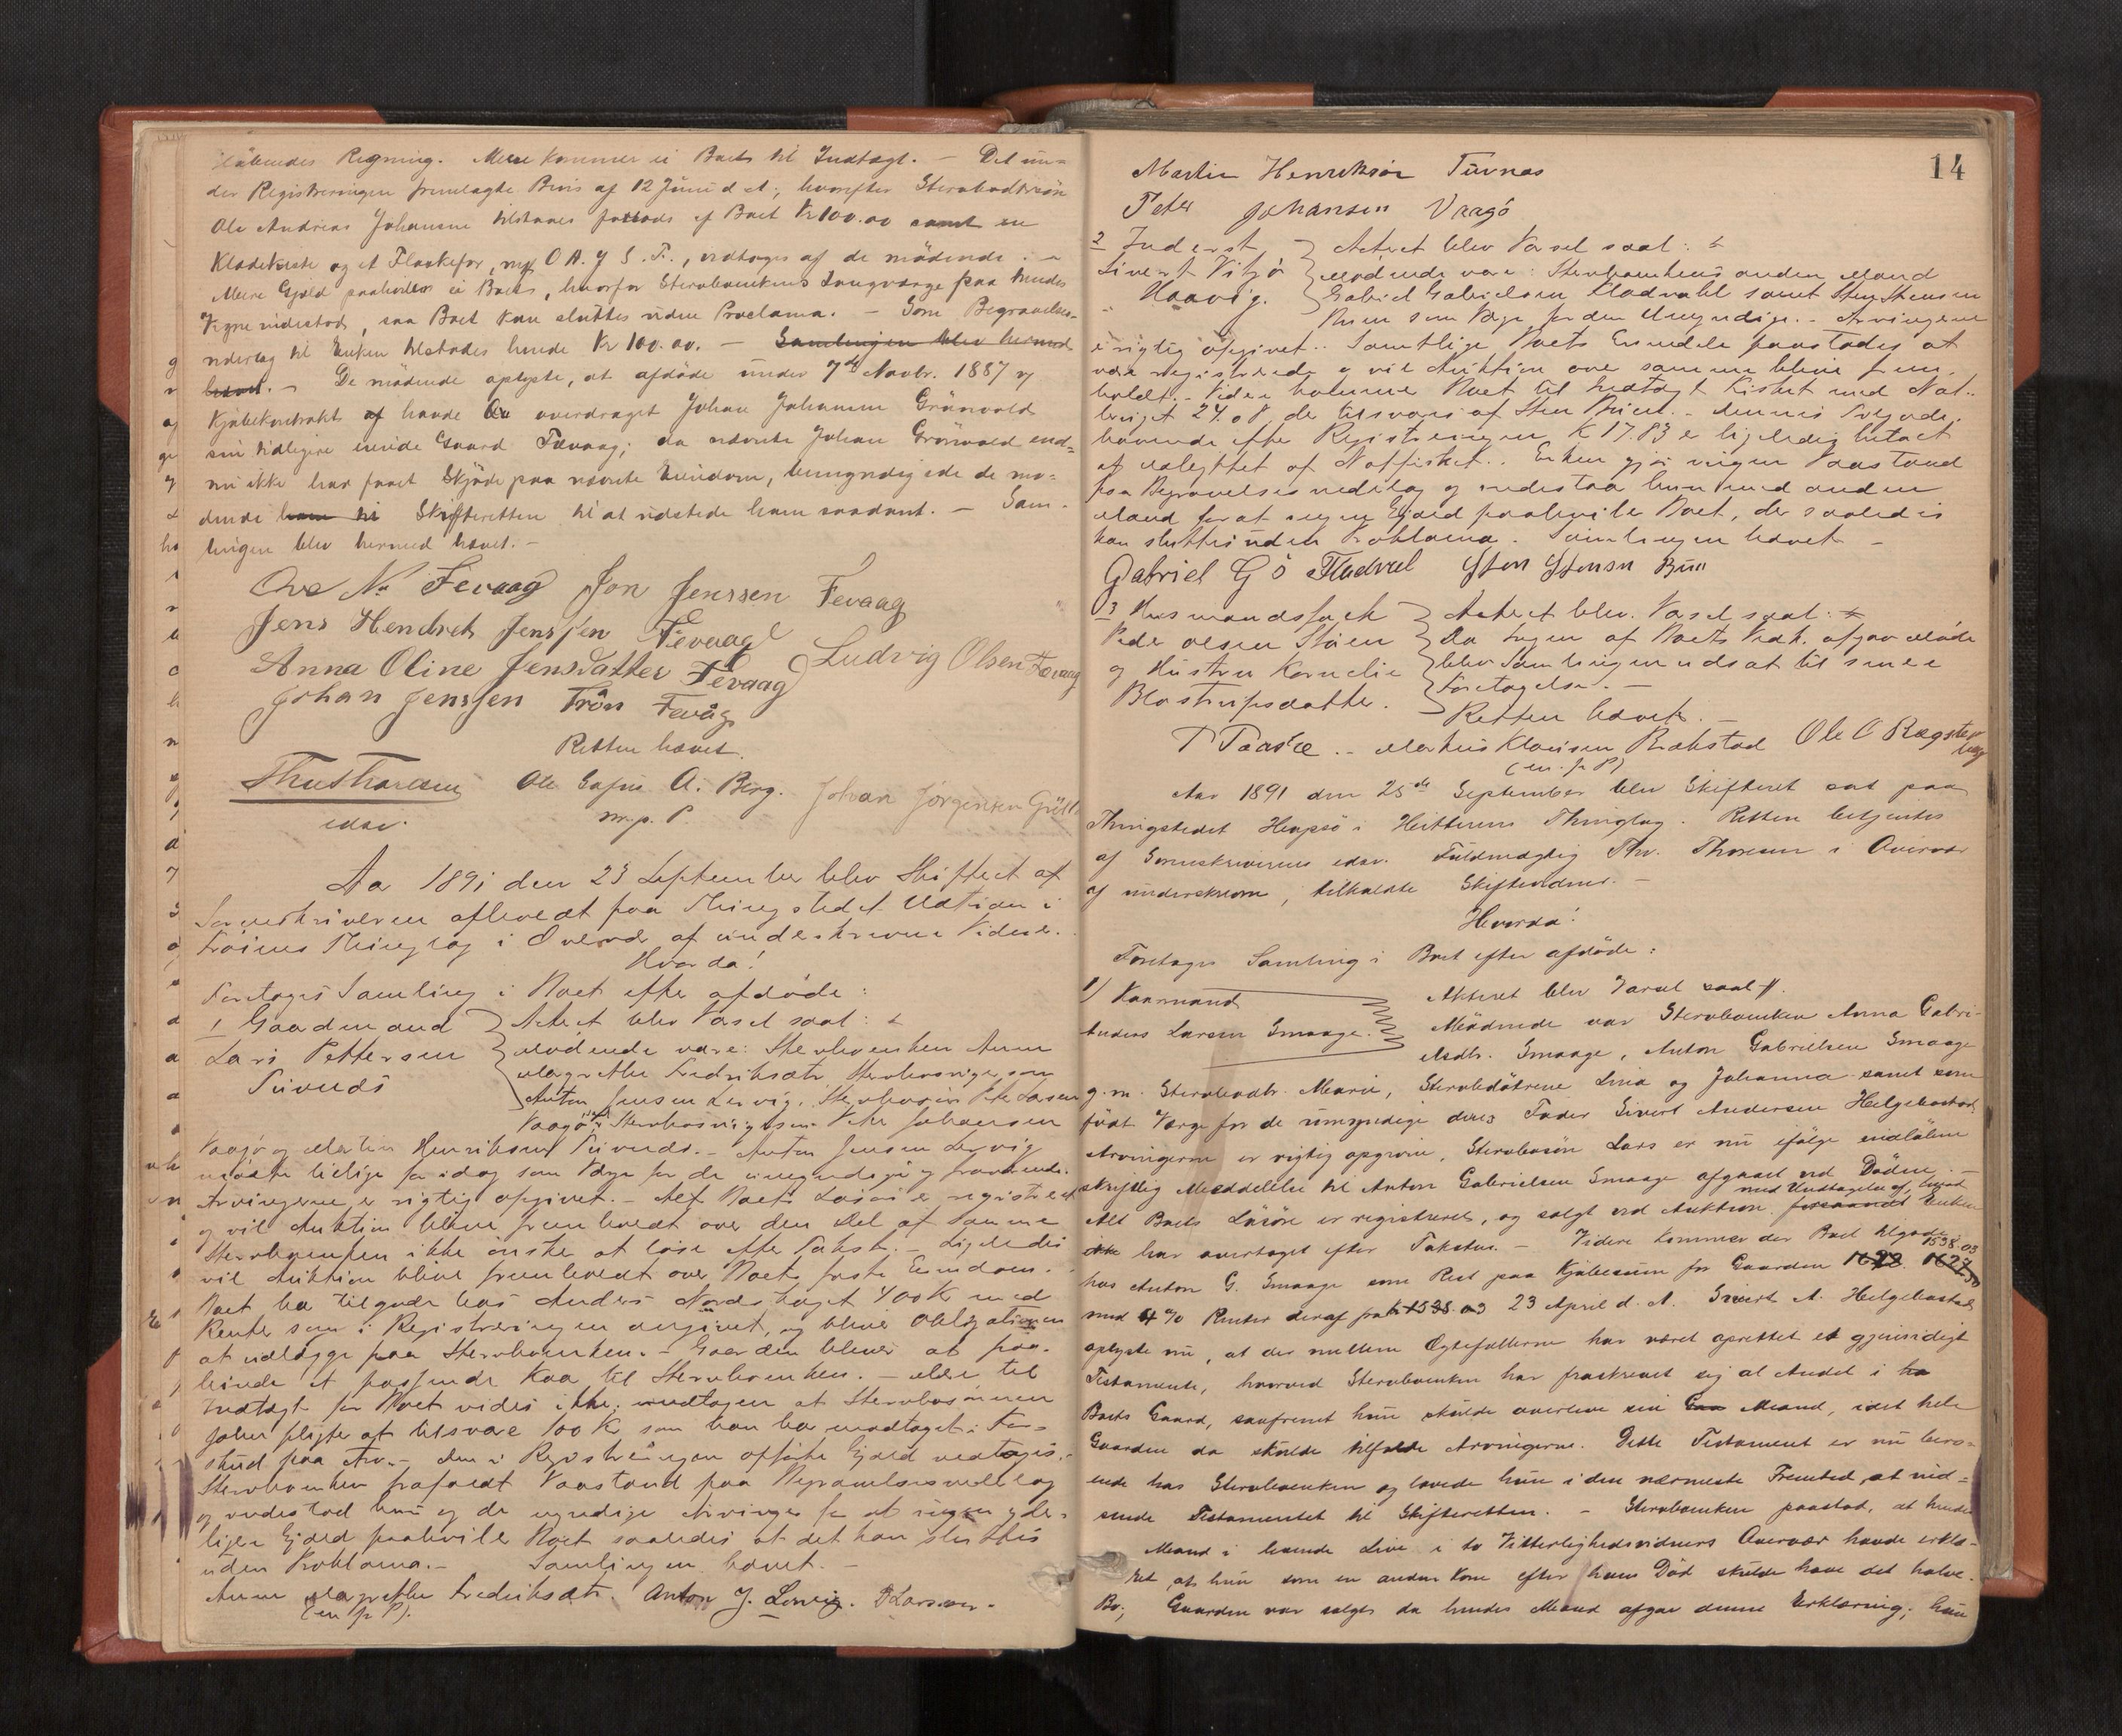 løbendes Regning. Mere kommer ei Boets til Indtægt. - Det un=
der Registreringen fremlagte Bevis af 12 Juni d. A., hvorefter Stervbodsøn
Ole Andreas Johansen tilstaaes forlods af Boet Kr 100.00 samt en
Klædekiste og et Flaskefor, O A. J S. F., vedtoges af de mødende. -
Mere Gjæld paahviler ei Boets, hvorfor Stervboenkens Laugværge paa hendes
Vegne indestod, saa Boet kan sluttes uden Proclama. - Som Begravelses-
nderlag til Enken tilstodes hende Kr 100.00. - Samlingen blev hermed
hævet. - De mødende oplyste, at afdøde under 7de Novbr. 1887
Kjøbekontrakt havde overdraget Johan Johansen Grønvold
sin tidligere eiende Gaard Fævaag; da nævnte Johan Grønvold end=
nu ikke har faaet Skjøde paa nævnte Eiendom, bemyndigede de mø=
dende ham til Skifteretten til at udstede ham saadant. - Sam-
lingen blev hermed hævet. -
Ove N. Fevaag Jon Jenssen Fevaag
Jens Hendrek Jenssen Fevaag
Anna Oline Jensdatter Fevaag Ludvig Olsen Fævaag
Johan Jenssen Trøn Fevåg
Retten hævet.
Thv Thoresen Ole A. Berg. Johan Jørgensen
edsv. m. p. P.
Aar 1891 den 23 September blev Skifteret af
Sorenskriveren afholdt paa Thingstedet i
Frøiens Thinglag i Overvær af underskrevne Vidner.
Hvorda!
Foretages Samling i Boet efter afdøde:
1 Gaardmand Acteret blev Varsel saal:
Lars Pettersen Mødende vare: Stervboenken Anne
Margrethe Fredriksdtr., Stervbosvigerson
Anton Jensen Lervig, Stervbosøn Peter Larsen
Vaagø, Stervbosvigersøn Peter Johansen
Vaagø og Martin Henriksen. - Anton Jensen Lervig
mødte tillige for idag som Værge for de umyndige og fraværende.
Arvingerne er rigtig opgivet. - Alt Boets Løsøre er registreret
og vil Auktion blive fremholdt over den Del af samme
Stervboenken ikke ønske at løse efter Takst. - Ligeledes
vil Auktion blive fremholdt over Boets faste Eiendom. -
Boet har tilgode hos Anders Nordskaget 400 Kr med
Renter som i Registreringen angivet, og bliver Obligationen
at udlægge paa Stervboenken. - Gaarden bliver at paa-
binde et passende Kaar til Stervboenken. - Mere til
Indtægt for Boet vides ikke, undtagen at Stervbosønnen
Johan pligter at tilsvare 100 Kr som han har modtaget i For-
skud paa Arv. - Den i Registreringen opførte Gjæld vedtages. -
Stervboenken frafaldt Paastand paa Begravelsesnedlæg
og indestod hun og de myndige Arvinger for at ingen yder-
ligere Gjæld paahviler Boet saaledes at det kan sluttes
uden Proklama. - Samlingen hævet. -
Anne Margrethe Fredriksdtr. Anton J. Lervig. P Larsen.
(m p P).
14
Martin Henriksen
Peter Johansen Vaagø
2 Inderst Acteret blev Varsel saal:
Sivert Mødende vare: Stervboenkens anden Mand
Haavig. Gabriel Gabrielsen Fladvahl samt Sten Stensen
Buen som Værge for den Umyndige. - Arvingerne
er rigtig opgivet. Samtlige Boets Eiendele paastodes at
være registrerede og vil Auktion over samme blive frem-
holdt. - Videre kommer Boet til Indtægt
24.08 der tilsvares af Sten Buen. -
havende efter Registreringen K 17.83 er ligeledes betalt
af udbyttet af Notfisket. Enken gjør ingen Paastand
paa Begravelsesnedlæg og indestaa hun med anden
Mand for at ingen Gjæld paahviler Boet, der saaledes
kan sluttes uden Proklama. Samlingen hævet. -
Gabriel G Fladval Sten Stensen Buen
3 Husmandsfolk Acteret blev Varsel saal:
Peder Olsen Støen Da Ingen af Boets Vedk. afgav Møde
og Hustru Kornelie blev Samlingen udsat til senere
Blostrupsdatter. Foretagelse. -
Retten hævet. -
T Taaske. - Markus Klausen Bækstad Ole O Rægsteen
(m. p. P)
Aar 1891 den 25de September blev Skifteret sat paa
Thingstedet Hopsø i Hitterens Thinglag. Retten betjentes
af Sorenskriverens edsv. Fuldmægtig Thv. Thoresen i Overvær
af underskrevne, tilkaldte Skiftevidner. -
Hvorda!
Foretages Samling i Boet efter afdøde:
1) Kaarmand Akteret blev Varsel saal.
Anders Larsen Smaage. Mødende var Stervboenken Anna Gabri-
elsdtr. Smaage, Anton Gabrielsen Smaage
g. m. Stervbodtr. Marie, Stervbdøtrene Lina og Johanna samt som
født Værge for de umyndige deres Fader Sivert Andersen Helgebostad
Arvingerne er rigtig opgivne, Stervbosøn Lars er nu ifølge indløben
skriftlig Meddelelse til Anton Gabrielsen Smaage afgaaet ved Døden. -
med Undtagelse af, hvad
Alt Boets Løsøre er registreret, og solgt ved Auktion, forsaavidt Enken
ikke har overtaget efter Takster. - Videre kommer der Boet tilgode
1598.03
hos Anton G. Smaage som Rest paa Kjøbesum for Gaarden
med 4% Renter deraf fra 23 April d. A. Sivert A. Helgebostad
oplyste nu, at der mellem Ægtefællerne har været oprettet et gjensidigt
Testamente, hvorved Stervboenken har fraskrevet sig al Andel i
Boets Gaard, saafremt hun skulde overleve sin Mand, idet hele
Gaarden da skulde tilfalde Arvingerne. Dette Testament er nu bero=
ende hos Stervboenken og lovede hun i den nærmeste Fremtid at ind=
sende Testamentet til Skifteretten. - Stervboenken paastod, at hendes
Mand i levende Live i to Vitterlighedsvidners Overvær havde erklæ-
ret, at hun som en anden Kone efter hans Død skulde have det halve
Bo; Gaarden var solgt da hendes Mand afgav denne Erklæring; hun